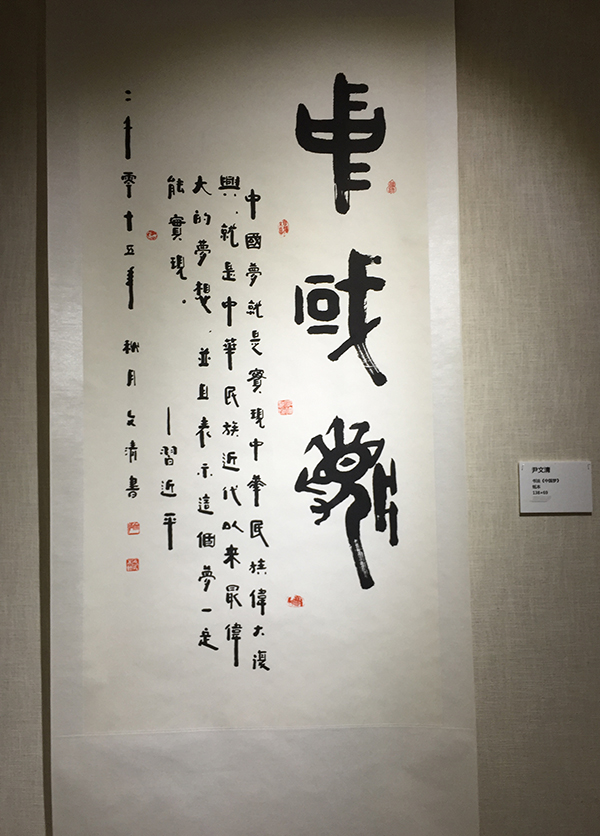 中國夢
中國夢就是實現中華民族偉大復
興，就是中華民族近代以來最偉
大的夢想，並且表示這個夢一定
能實現。
——習近平
二千零十五年秋月文清書
尹文清
书法《中国梦》
纸本
138×68